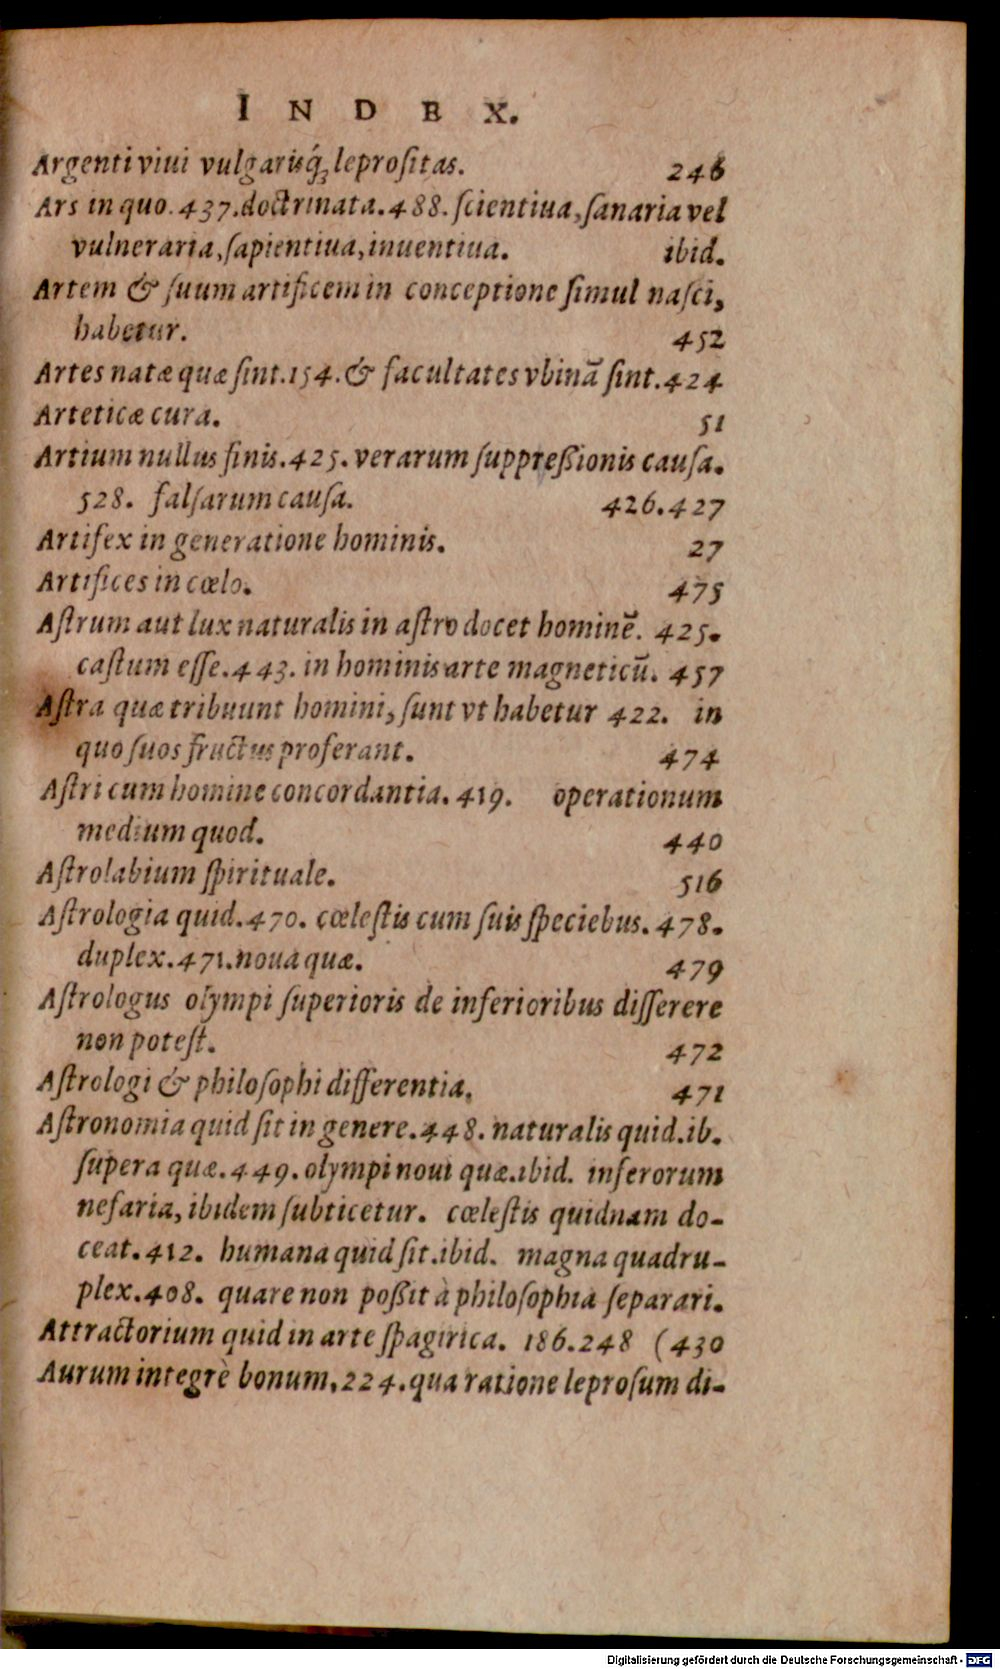 INDEX.
Argenti viui vulgarisq́ꝫ leprositas. 246
Ars in quo. 437. doctrinata. 488. scientiua, sanaria vel
vulneraria, sapientiua, inuentiua. ibid.
Artem & suum artificem in conceptione simul nasci,
habetur. 452
Artes natæ quæ sint. 154. & facultates vbinā sint. 424
Arteticæ cura. 51
Artium nullus finis. 425. verarum suppreßionis causa.
528. falsarum causa. 426. 427
Artifex in generatione hominis. 27
Artifices in cœlo. 475
Astrum aut lux naturalis in astro docet hominē. 425.
castum esse. 443. in hominis arte magneticū. 457
Astra quæ tribuunt homini, sunt vt habetur 422. in
quo suos fructus proferant. 474
Astri cum homine concordantia. 419. operationum
medium quod. 440
Astrolabium spirituale. 516
Astrologia quid. 470. cœlestis cum suis speciebus. 478.
duplex. 471. noua quæ. 479
Astrologus olympi superioris de inferioribus disserere
non potest. 472
Astrologi & philosophi differentia. 471
Astronomia quid sit in genere. 448. naturalis quid. ib.
supera quæ. 449. olympi noui quæ. ibid. inferorum
nefaria, ibidem subticetur. cœlestis quidnam do-
ceat. 412. humana quid sit. ibid. magna quadru-
plex. 408. quare non poßit à philosophia separari.
Attractorium quid in arte spagirica. 186. 248 (430
Aurum integrè bonum, 224. qua ratione leprosum di-
Digitalisierung gefördert durch die Deutsche Forschungsgemeinschaft - DFG